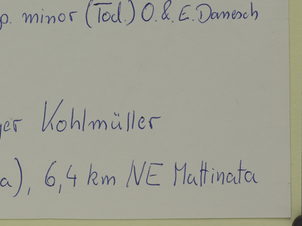 p. minor (Tod.) O. & E. Danesch
ger Kohlmüller
a), 6,4 km NE Mattinata